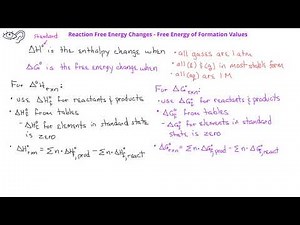 Reaction Free Energy Changes - Free Energy of Formation Values
Standard
ΔH° is the enthalpy change when
ΔG° is the free energy change when
• all gases are 1 atm
• all (s) & (l) in most stable form
• all (aq) are 1 M
For ΔH°rxn:
• use ΔH°f for reactants & products
• ΔH°f from tables
- ΔH°f for elements in standard
state is zero
ΔH°rxn = Σn·ΔH°f,prod - Σn·ΔH°f,react
For ΔG°rxn:
• use ΔG°f for reactants & products
• ΔG°f from tables
- ΔG°f for elements in
standard state is zero
ΔG°rxn = Σn·ΔG°f,prod - Σn·ΔG°f,react